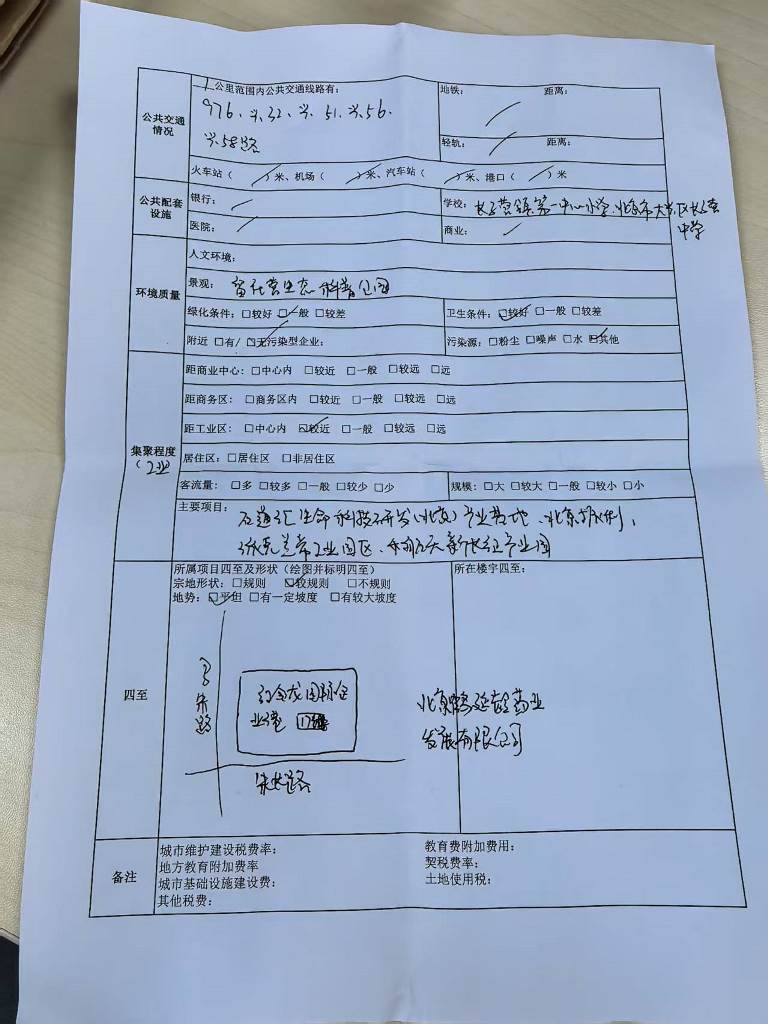 公共交通情况
1公里范围内公共交通线路有:
976、兴32、兴51、兴56、
兴58路
地铁: 距离:
轻轨: 距离:
火车站( )米、机场( )米、汽车站( )米、港口( )米
公共配套设施
银行:
学校: 长子营镇第一中心小学、北京市大兴区长子营
中学
医院:
商业:
环境质量
人文环境:
景观: 留民营生态科普公园
绿化条件: □较好 □一般 □较差
卫生条件: □较好 □一般 □较差
附近 □有/ □无污染型企业;
污染源: □粉尘 □噪声 □水 □其他
集聚程度
(工业)
距商业中心: □中心内 □较近 □一般 □较远 □远
距商务区: □商务区内 □较近 □一般 □较远 □远
距工业区: □中心内 □较近 □一般 □较远 □远
居住区: □居住区 □非居住区
客流量: □多 □较多 □一般 □较少 □少
规模: □大 □较大 □一般 □较小 □小
主要项目: 汇生命科技研发(北京)产业基地、北京
工业园区、产业园
四至
所属项目四至及形状(绘图并标明四至)
宗地形状: □规则 □较规则 □不规则
地势: □平坦 □有一定坡度 □有较大坡度
所在楼宇四至:
朱路
国际企
业港
北京 药业
发展有限公司
朱长路
备注
城市维护建设税费率:
教育费附加费用:
地方教育附加费率
契税费率:
城市基础设施建设费:
土地使用税:
其他税费: